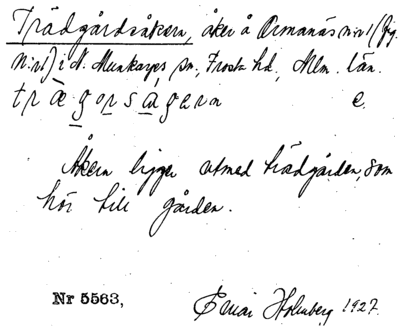 Trädgårdsåkern, åker å Ormanäs nr 1 (Gg.
Nr 1) i N. Munkarps sn, Frosta hd, Mlm. län.
trægorsågern e.
Åkern ligger utmed trädgården, som
hör till gården.
Nr 5563,
Einar Holmberg 1927.